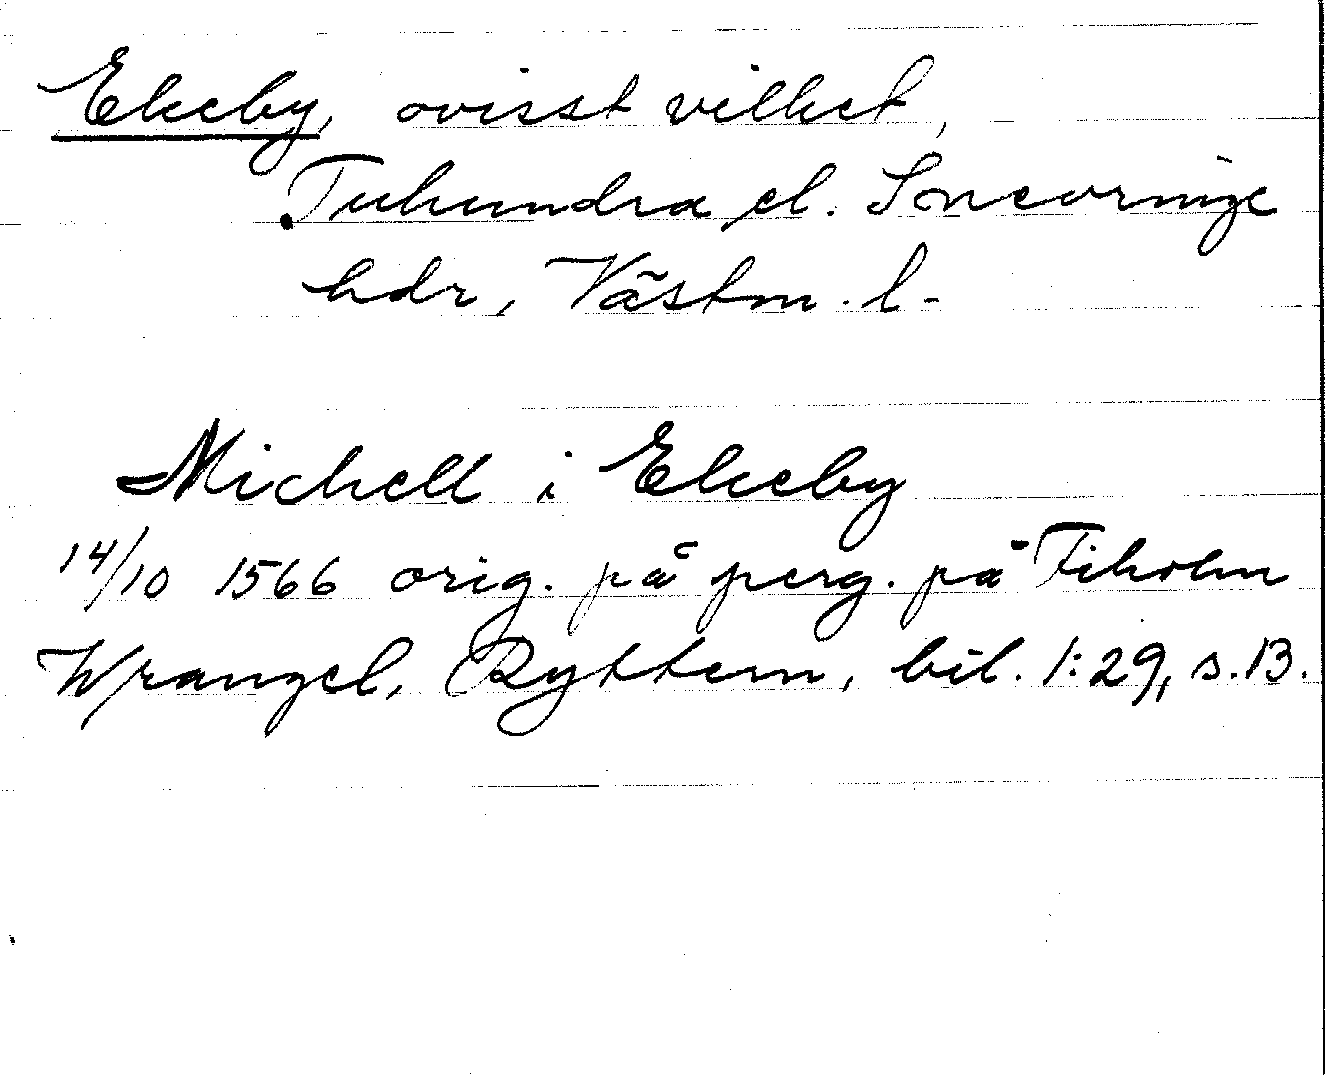 Ekeby, ovisst vilket,
Tuhundra el. Snevringe
hdr, Västm. l.
Michell i Ekeby
14/10 1566 orig. på perg. på Tiholm
Wrangel, Ryttern, bil. 1:29, s. 13.